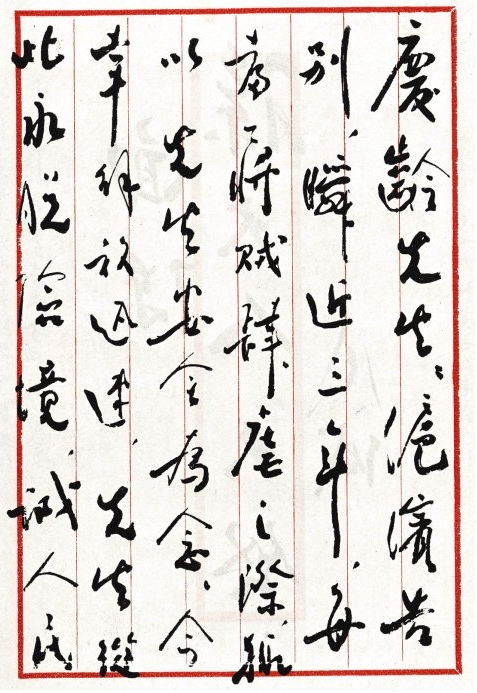 慶齡先生:滬濱告
别,瞬近三年,每
當蔣賊肆虐之際,輒
以先生安全為念、今
幸解放迅速,先生從
此永脱險境,誠人民